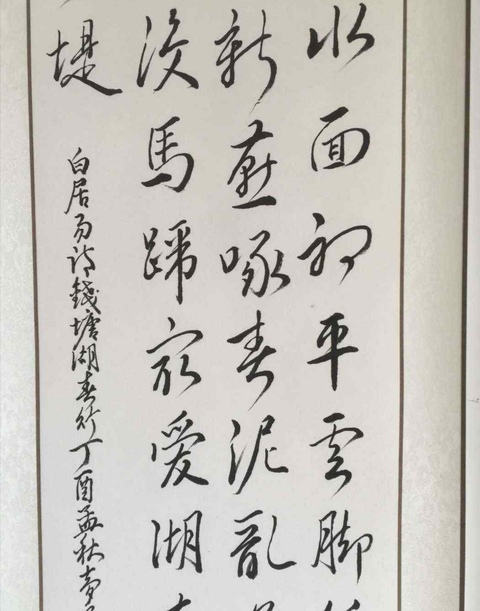 水面初平雲脚
新燕啄春泥亂
沒馬蹄最愛湖
堤
白居易詩錢塘湖春行丁酉孟秋